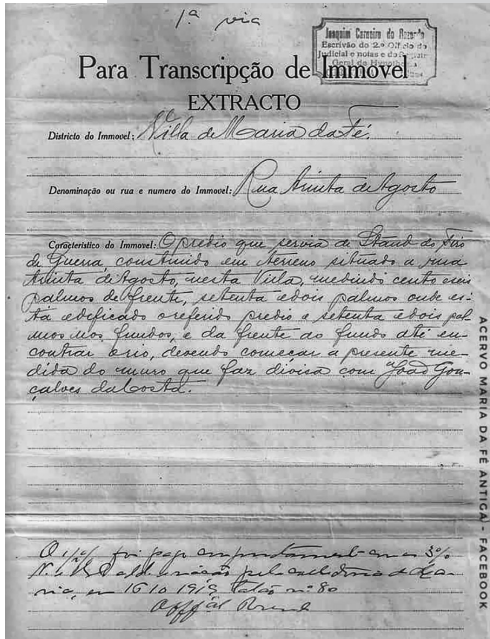 1ª via
Joaquim Carneiro de Rezende
Escrivão do 2º Officio do
Judicial e notas e do
Geral da
Para Transcripção de Immovel
EXTRACTO
Districto do Immovel: Villa de Maria da Fé.
Denominação ou rua e numero do Immovel: Rua Trinta de Agosto
Caracteristico do Immovel: O predio que servia de Stand do Tiro
de Guerra, construido em terreno situado a rua
Trinta de Agosto, nesta Villa, medindo cento e seis
palmos de frente, setenta e dois palmos onde es-
tá edificado o referido predio e setenta e dois pal
mos nos fundos, e da frente ao fundo até en-
contrar o rio, devendo começar a presente me-
dida do muro que faz divisa com João Gon-
çalves da Costa.
foi pago
em 16 10 1919, talão nº 80
ACERVO MARIA DA FÉ ANTIGA - FACEBOOK